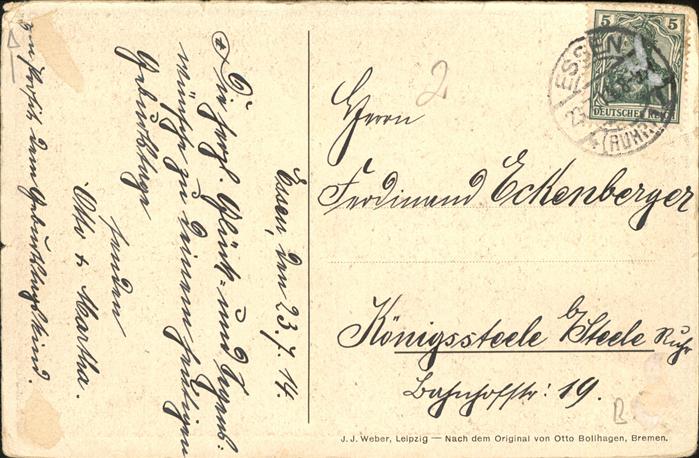 Essen, den 23.7.14.
Die herzl. Glück- und Segens-
wünsche zu Deinem heutigen
Geburtstage
senden
Otto & Martha.
Prosit dem Geburtstagskind.
2
5 5
DEUTSCHES REICH
ESSEN
(RUHR)
23
Herrn
Ferdinand Eckenberger
Königssteele b/Steele Ruhr
Bahnhofstr: 19.
B
J. J. Weber, Leipzig — Nach dem Original von Otto Bollhagen, Bremen.